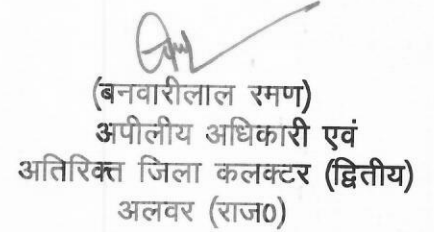 (बनवारीलाल रमण)
अपीलीय अधिकारी एवं
अतिरिक्त जिला कलक्टर (द्वितीय)
अलवर (राज0)